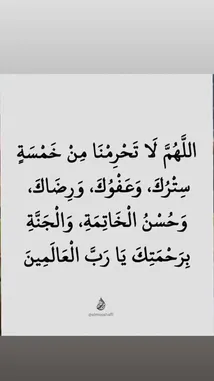 اللَّهُمَّ لَا تَحْرِمْنَا مِنْ خَمْسَةٍ
سِتْرُكَ، وَعَفْوُكَ، وَرِضَاكَ،
وَحُسْنُ الْخَاتِمَةِ، وَالْجَنَّةِ
بِرَحْمَتِكَ يَا رَبَّ الْعَالَمِينَ